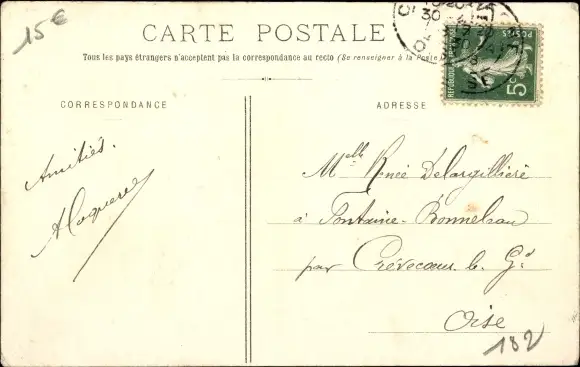 15€
CARTE POSTALE
Tous les pays étrangers n'acceptent pas la correspondance au recto (Se renseigner à la Poste)
CORRESPONDANCE
ADRESSE
POSTES
5c
Amitiés.
Melle Renée Delargillière
à Fontaine-Bonneleau
par Crévecoeur. le Gd
Oise
182